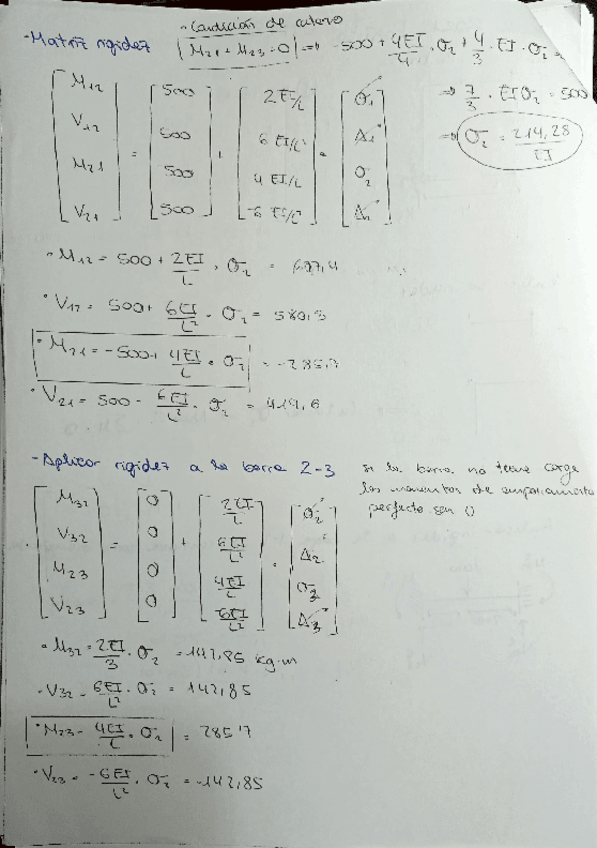 - Condición de cálculo
- Matriz rigidez | M21 + M23 = 0 | => -500 + 4EI/4 · σ2 + 4/3 · EI · σ2 =
=> 7/3 · EI σ2 = 500
=> σ2 = 214,28/EI
[M12 V12 M21 V21] = [500 500 500 500] + [2EI/L 6EI/L² 4EI/L -6EI/L²] · [σ1 Δ1 σ2 Δ2]
· M12 = 500 + 2EI/L · σ2 =
· V12 = 500 + 6EI/L² · σ2 = 580,3
· M21 = -500 + 4EI/L · σ2 = -285,7
· V21 = 500 - 6EI/L² · σ2 = 419,6
- Aplicar rigidez a la barra 2-3 si la barra no tiene carga
los momentos de empotramiento
perfecto son 0
[M32 V32 M23 V23] = [0 0 0 0] + [2EI/L 6EI/L² 4EI/L -6EI/L²] · [σ2 Δ2 σ3 Δ3]
· M32 = 2EI/3 · σ2 = 142,85 kg·m
· V32 = 6EI/L² · σ2 = 142,85
· M23 = 4EI/L · σ2 = 285'7
· V23 = -6EI/L² · σ2 = -142,85